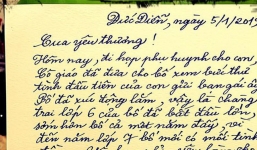 Diễn, ngày 5/1/201
Cua yêu thương!
Hôm nay, đi họp phụ huynh cho con,
Cô giáo đã đưa cho bố xem bức thư
tình đầu tiên của con gửi bạn gái
Bố đã xúc động lắm vậy là chàng
trai lớp 6 của bố đã bắt đầu lớn,
sớm hơn bố cả một năm đấy, vì
đến năm lớp 7 bố mới có mối tình